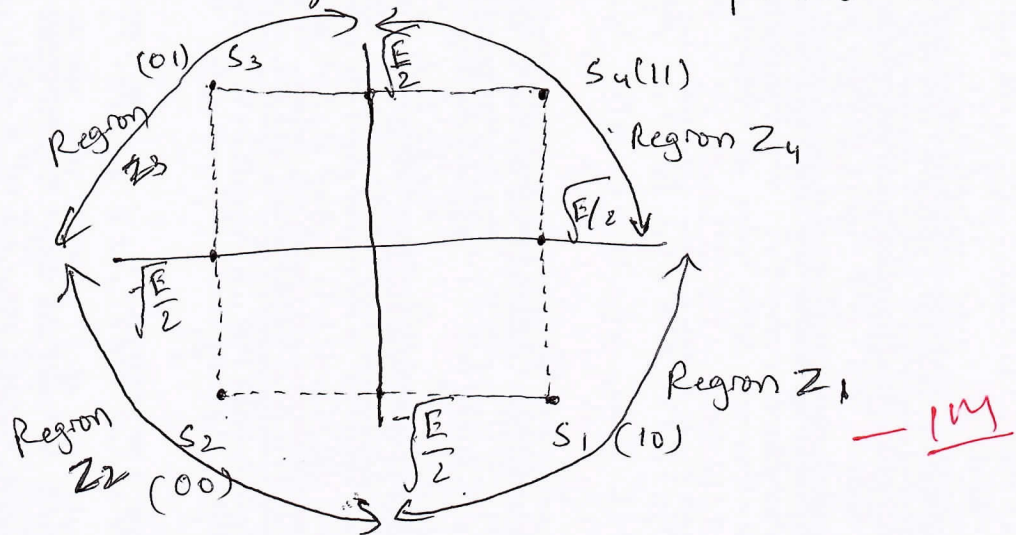 (01) S3
√E/2
S4(11)
Region
Z3
Region Z4
√E/2
-√E/2
Region Z1
-√E/2
Region
Z2
S2
(00)
S1 (10)
— 1M